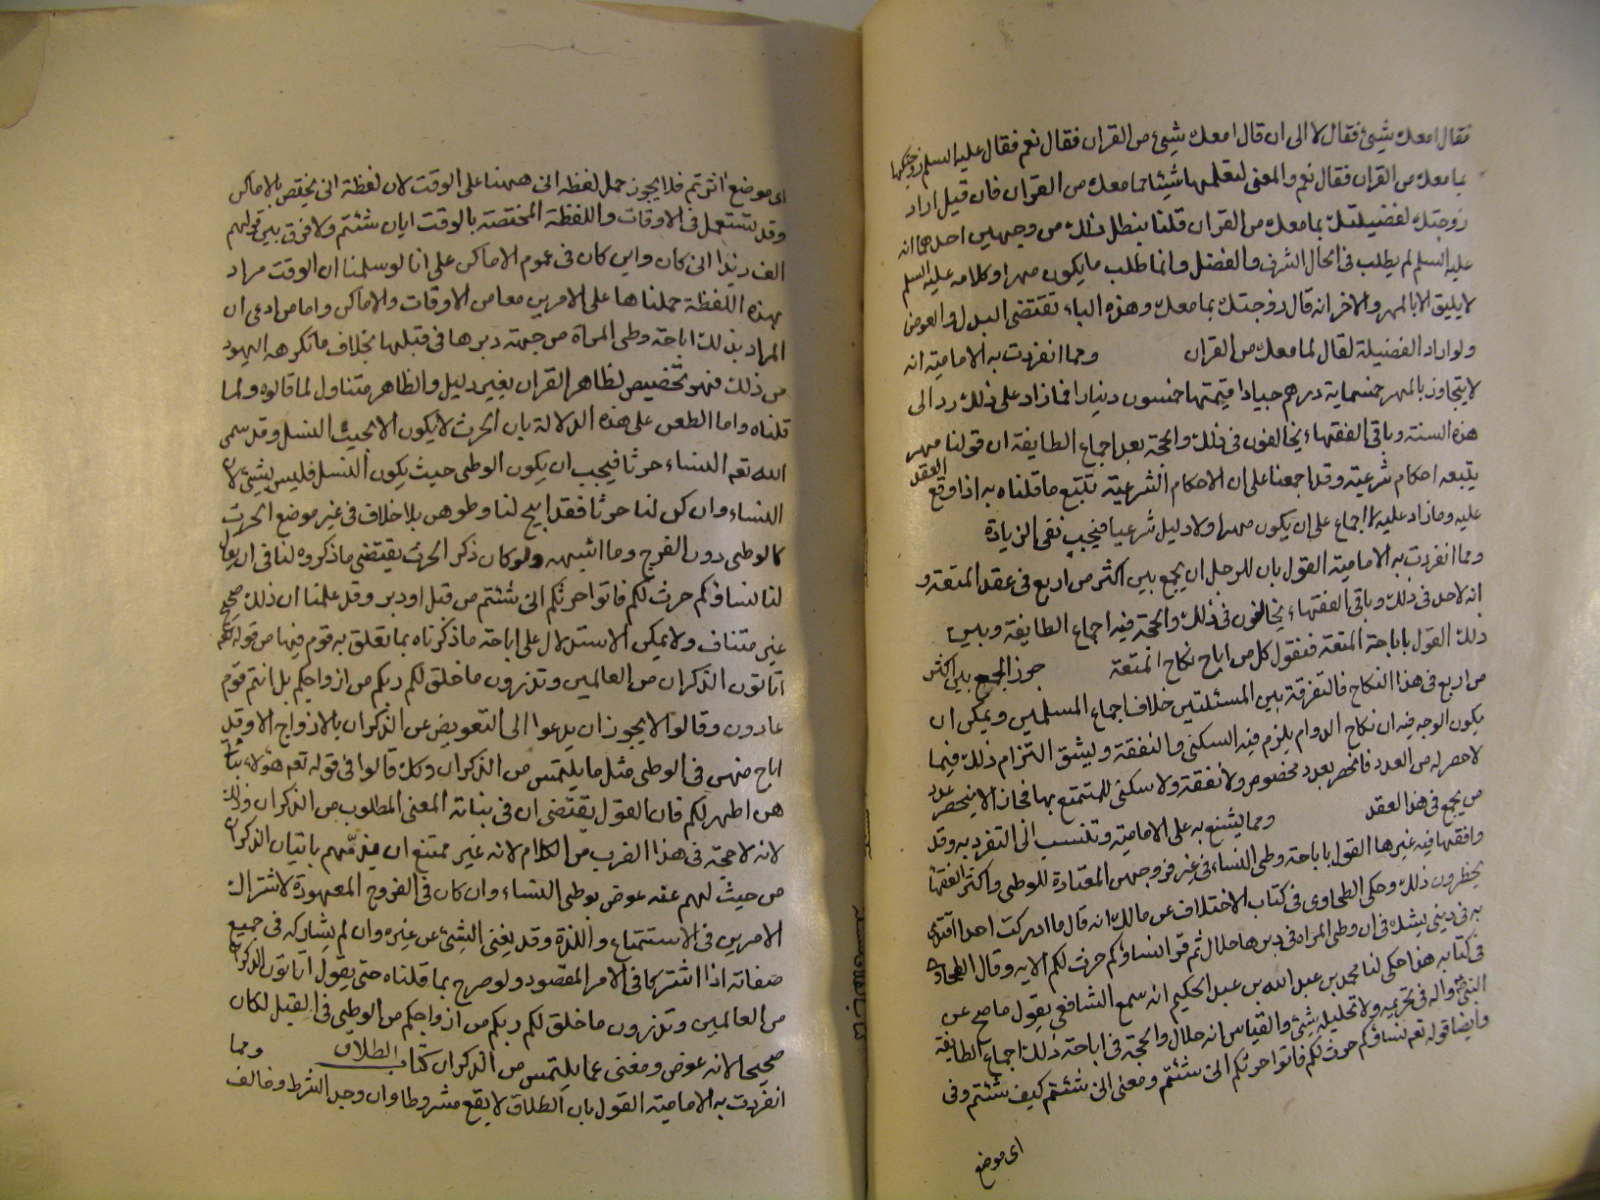 فقال امعك شيئ فقال لا الى ان قال امعك شيئ من القران فقال نعم فقال عليه السلم زوجتكها
بما معك من القران فقال نعم والمعنى ليعلمها شيئا مما معك من القران فان قيل اراد
زوجتك لفضيلتك بما معك من القران قلنا يبطل ذلك من وجهين احدهما انه
عليه السلم لم يطلب في الحال الشرف والفضل وانما طلب ما يكون مهرا وكلامه عليه السلم
لا يليق الا بالمهر والاخر انه قال زوجتك بما معك وهذه الباء تقتضى البدل والعوض
ولو اراد الفضيلة لقال لما معك من القران ومما انفردت به الامامية انه
لا يتجاوز بالمهر خمسماية درهم جيادا قيمتها خمسون دينارا فما زاد على ذلك رد الى
هذه السنة وباقى الفقهاء يخالفون في ذلك والحجة بعد اجماع الطايفة ان قولنا مهر
يتبعه احكام شرعية وقد اجمعنا على ان الاحكام الشرعية تتبع ما قلناه به اذا وقع العقد
عليه وما زاد عليه لا اجماع على ان يكون مهرا ولا دليل شرعيا فيجب نفى الزيادة
ومما انفردت به الامامية القول بان للرجل ان يجمع بين اكثر من اربع في عقد المتعة و
انه لا حد في ذلك وباقى الفقهاء يخالفون في ذلك والحجة فيه اجماع الطايفة وبين
ذلك القول باباحة المتعة فنقول كل من اباح نكاح المتعة جوز الجمع بين اكثر
من اربع في هذا النكاح فالتفرقة بين المسئلتين خلاف اجماع المسلمين ويمكن ان
يكون الوجه فيه ان نكاح الدوام يلزم فيه السكنى والنفقة ويشق التزام ذلك فيما
لا حصر له من العدد فانحصر بعدد مخصوص ولا نفقة ولا سكنى للمتمتع بها فجاز الا ينحصر عدد
من يجمع في هذا العقد ومما يشنع به على الامامية وتنسب الى التفرد به وقد
وافقها فيه غيرها القول باباحة وطى النساء في غير فروجهن المعتادة للوطى واكثر الفقها
يحظرون ذلك وحكى الطحاوى في كتاب الاختلاف عن مالك انه قال ما ادركت احدا اقتدى
به في دينى يشك في ان وطى المراه في دبرها حلال ثم قرا نساؤكم حرث لكم الايه وقال الطحاوى
في كتابه هذا حكى لنا محمد بن عبد الله بن عبد الحكيم انه سمع الشافعى يقول ما صح عن
النبى ص واله في تحريمه ولا تحليله شيئ والقياس انه حلال والحجة في اباحة ذلك اجماع الطائفة
وايضا قوله تعم نساؤكم حرث لكم فاتوا حرثكم انى شئتم ومعنى انى شئتم كيف شئتم وفى
اى موضع
اى موضع اثرتم فلا يجوز حمل لفظه انى ههنا على الوقت لان لفظة انى يختص بالاماكن
وقد تستعمل في الاوقات واللفظة المختصة بالوقت ايان شئتم ولا فرق بين قولهم
الف زيدا انى كان واين كان في عموم الاماكن على انا لو سلمنا ان الوقت مراد
بهذه اللفظة حملناها على الامرين معا من الاوقات والاماكن واما من ادعى ان
المراد بذلك اباحة وطى المراة من جهة دبرها في قبلها بخلاف ما تكرهه اليهود
من ذلك فهو تخصيص لظاهر القران بغير دليل والظاهر متناول لما قالوه ولما
قلناه واما الطعن على هذه الدلالة بان الحرث لا يكون الا بحيث النسل وقد سمى
الله تعم النساء حرثا فيجب ان يكون الوطى حيث يكون النسل فليس بشيئ لان
النساء وان كن لنا حرثا فقد ابيح لنا وطوهن بلا خلاف في غير موضع الحرث
كالوطى دون الفرج وما اشبهه ولو كان ذكر الحرث يقتضى ما ذكروه لتنافى ان يقول
لنا نساؤكم حرث لكم فاتوا حرثكم انى شئتم من قبل او دبر وقد علمنا ان ذلك صحيح
غير متناف ولا يمكن الاستدلال على اباحة ما ذكرناه بما تعلق به قوم فيها من قوله تعم
اتاتون الذكران من العالمين وتذرون ما خلق لكم ربكم من ازواجكم بل انتم قوم
عادون وقالوا لا يجوز ان يدعوا الى التعويض عن الذكران بالازواج الا وقد
اباح منهن في الوطى مثل ما يلتمس من الذكران وكذلك قالوا في قوله تعم هؤلاء بناتى
هن اطهر لكم فان القول يقتضى ان في بناته المعنى المطلوب من الذكران وذلك
لانه لا حجة في هذا الضرب من الكلام لانه غير ممتنع ان يذمهم باتيان الذكران
من حيث لهم عنه عوض بوطى النساء وان كان في الفروج المعهودة لاشتراك
الامرين في الاستمتاع واللذة وقد يغنى الشيئ عن غيره وان لم يشاركه في جميع
صفاته اذا اشتركا في الامر المقصود ولو صرح بما قلناه حتى يقول اتاتون الذكران
من العالمين وتذرون ما خلق لكم ربكم من ازواجكم من الوطى في القبل لكان
صحيحا لانه عوض ومغنى عما يلتمس من الذكران كتاب الطلاق ومما
انفردت به الامامية القول بان الطلاق لا يقع مشروطا وان وجد الشرط وخالف